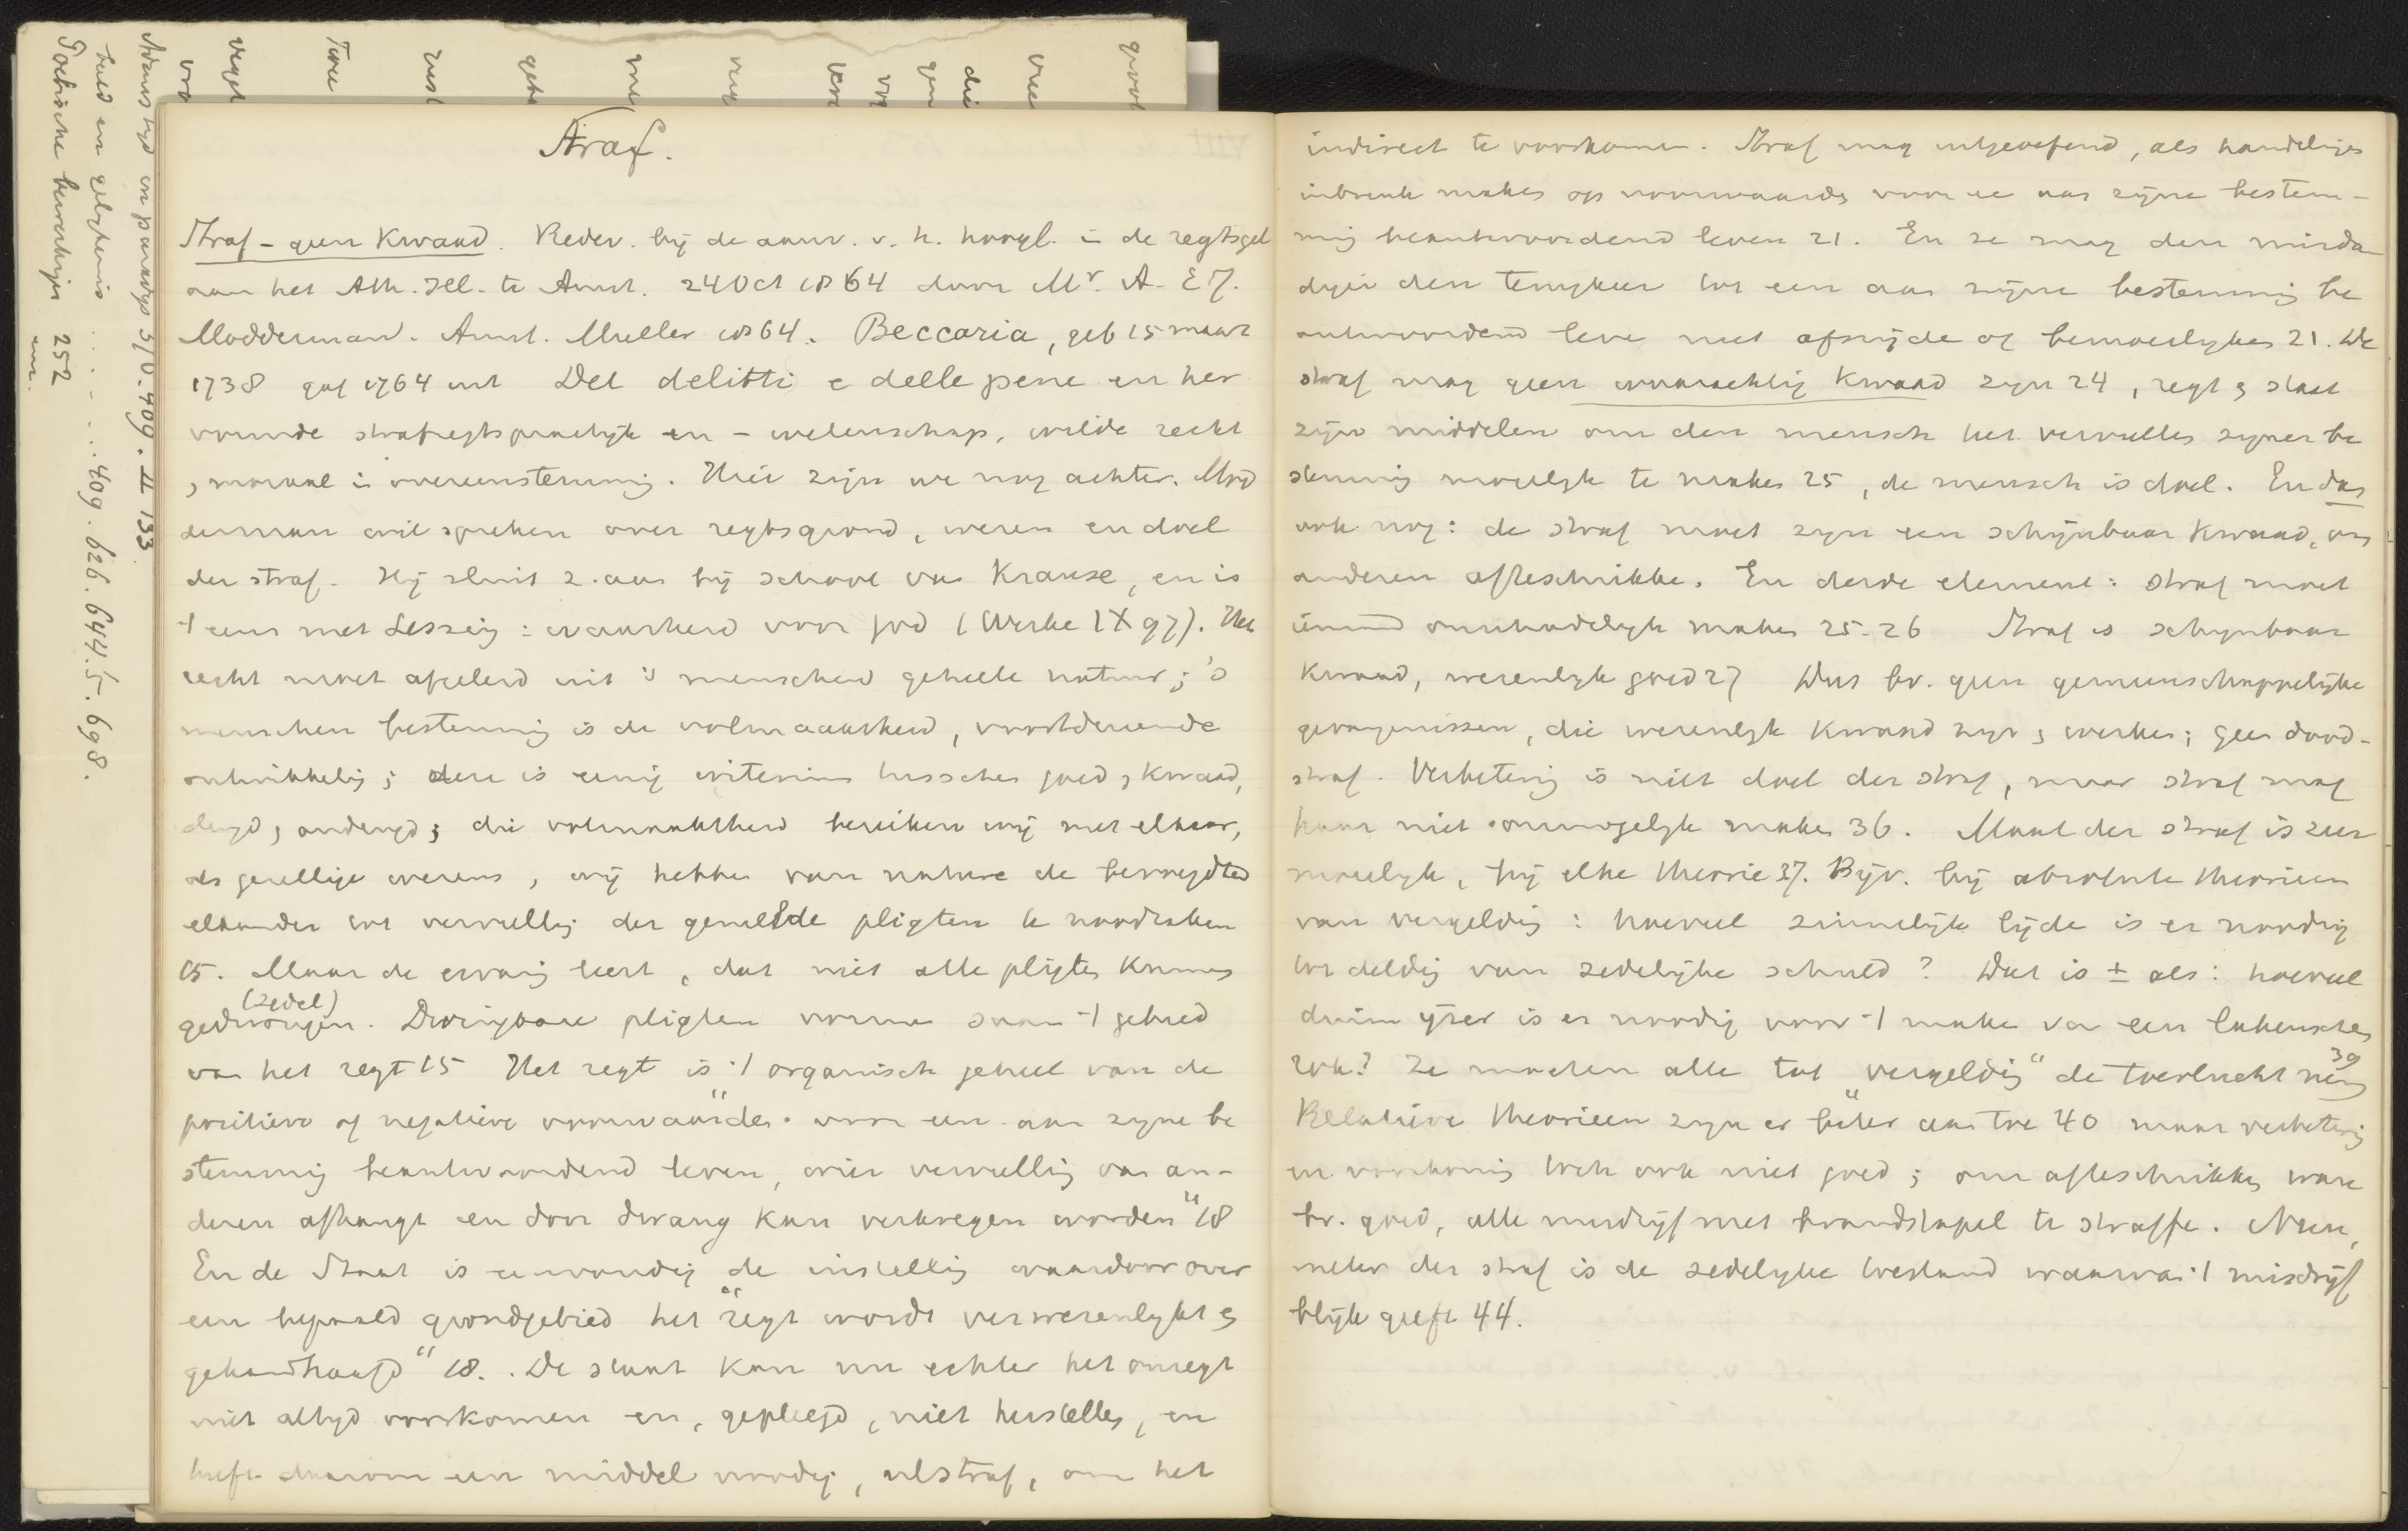 Straf.
Straf - geen Kwaad. Redev. bij de aanv. v. h. hoogl. in de regtsgel
aan het Ath. Ill. te Amst. 24 Oct 1864 door Mr. A. E J.
Modderman. Amst. Muller 1864. Beccaria, geb 15 maart
1738 gaf 1764 uit Dei delitti e delle pene en her
vormde strafregtspractijk en - wetenschap, wilde recht
, moraal in overeenstemming. Hier zijn we nog achter. Mod
derman wil spreken over regtsgrond, wezen en doel
der straf. Hij sluit z. aan bij school van Krause, en is
't eens met Lessing: waarheid voor god (Werke IX 97). Het
recht moet afgeleid uit 's menschen geheele natuur; 's
menschen bestemming is de volmaaktheid, voortdurende
ontwikkeling; deze is eenig criterium tusschen goed, kwaad,
deugd, ondeugd; die volmaaktheid bereiken wij met elkaar,
als gezellige wezens, wij hebben van nature de bevoegdheid
elkander tot vervulling der gemelde pligten te noodzaken
15. Maar de ervaring leert, dat niet alle pligten kunnen
(zedel)
gedwongen. Dwingbare pligten vormen saam 't gebied
van het regt 15 Het regt is 't organisch geheel van de
positieve of negatieve „voorwaarden voor een aan zijne be
stemming beantwoordend leven, wier vervulling van an-
deren afhangt en door dwang kan verkregen worden" 18
En de Staat is eenvoudig de instelling waardoor over
een bepaald grondgebied het „regt wordt verwezenlijkt en
gehandhaafd" 18. De staat kan nu echter het onregt
niet altijd voorkomen en, gepleegd, niet herstellen, en
heeft daarom een middel noodig, nl straf, om het
indirect te voorkomen. Straf mag uitgeoefend, als handelingen
inbreuk maken op voorwaarden voor een aan zijne bestem-
ming beantwoordend leven 21. En ze mag den misda
diger den terugkeer tot een aan zijne bestemming be
antwoordend leven niet afsnijden of bemoeilijken 21. De
straf mag geen kwaad zijn 24, regt en staat
zijn middelen om den mensch het vervullen zijner be
stemming mogelijk te maken 25, de mensch is doel. En dan
ook nog: de straf moet zijn een schijnbaar kwaad, om
anderen afteschrikken. En derde element: straf moet
iemand onschadelijk maken 25-26 Straf is schijnbaar
Kwaad, wezenlijk goed 27 Dus bv. geen gemeenschappelijke
gevangenissen, die wezenlijk kwaad zijn en werken; geen dood-
straf. Verbetering is niet doel der straf, maar straf mag
haar niet onmogelijk maken 36. Maat der straf is zeer
moeilijk, bij elke theorie 37. Bijv. bij absolute theorieen
van vergelding: hoeveel zinnelijk lijden is er noodig
tot delging van zedelijke schuld? Dat is ± als: hoeveel
duim ijzer is er noodig voor 't maken van een lakensche
rok? Ze moeten alle tot „vergelding" de toevlucht nemen 39
Relatieve theorieen zijn er beter aan toe 40 maar verbetering
en voorkoming toch ook niet goed; om afteschrikken ware
bv. goed, alle misdrijf met brandstapel te straffen. Neen,
meter der straf is de zedelijke toestand waarvan 't misdrijf
blijk geeft 44.
Adams tijd en paradijs 510. 409. II 133
409. 626. 644. 5. 698.
252